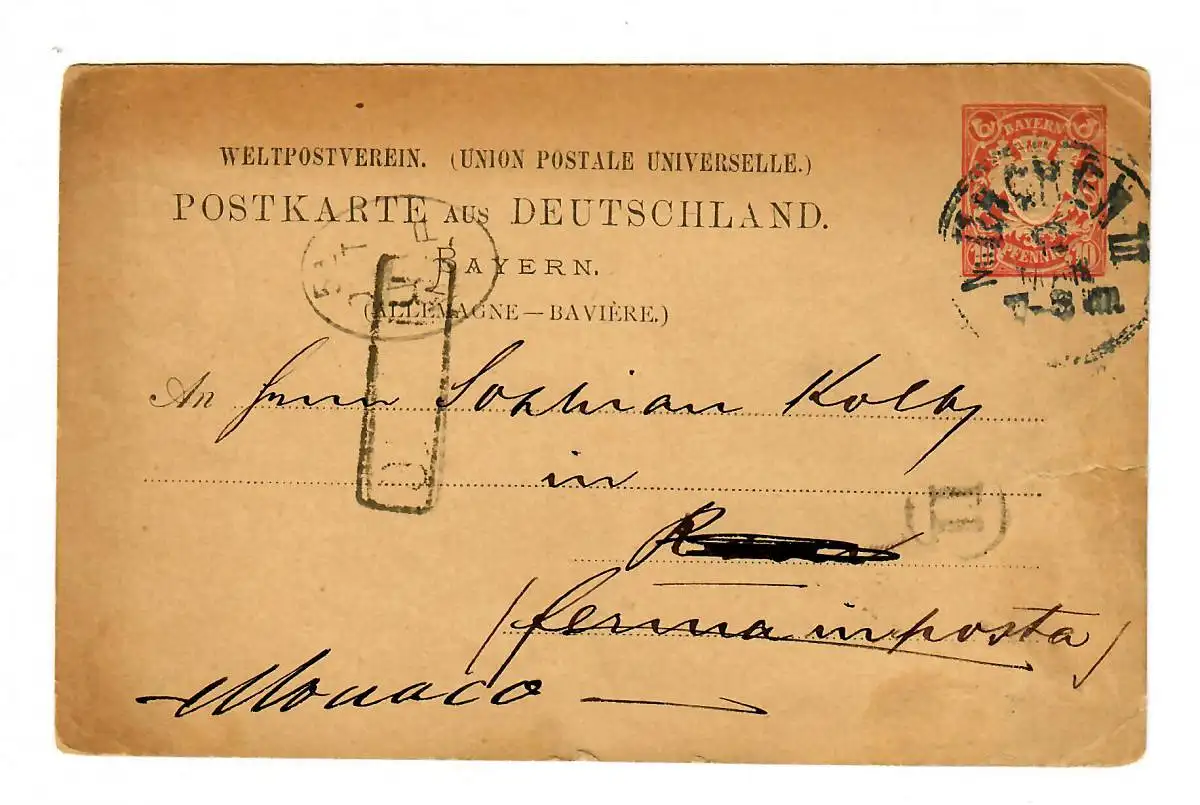 WELTPOSTVEREIN. (UNION POSTALE UNIVERSELLE.)
POSTKARTE AUS DEUTSCHLAND.
BAYERN.
(ALLEMAGNE — BAVIÈRE.)
BAYERN
PFENNIG
10 10
MÜNCHEN III
7-8
An Herrn Kolb
in
(ferma in posta)
Monaco